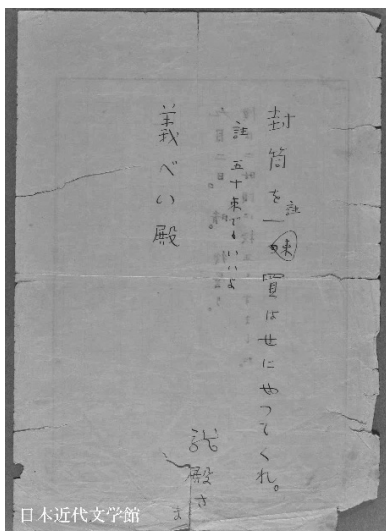 封筒を一束買はせにやつてくれ。
註
註 五十束でもいいよ
義べい殿
龍
殿さま
日本近代文学館